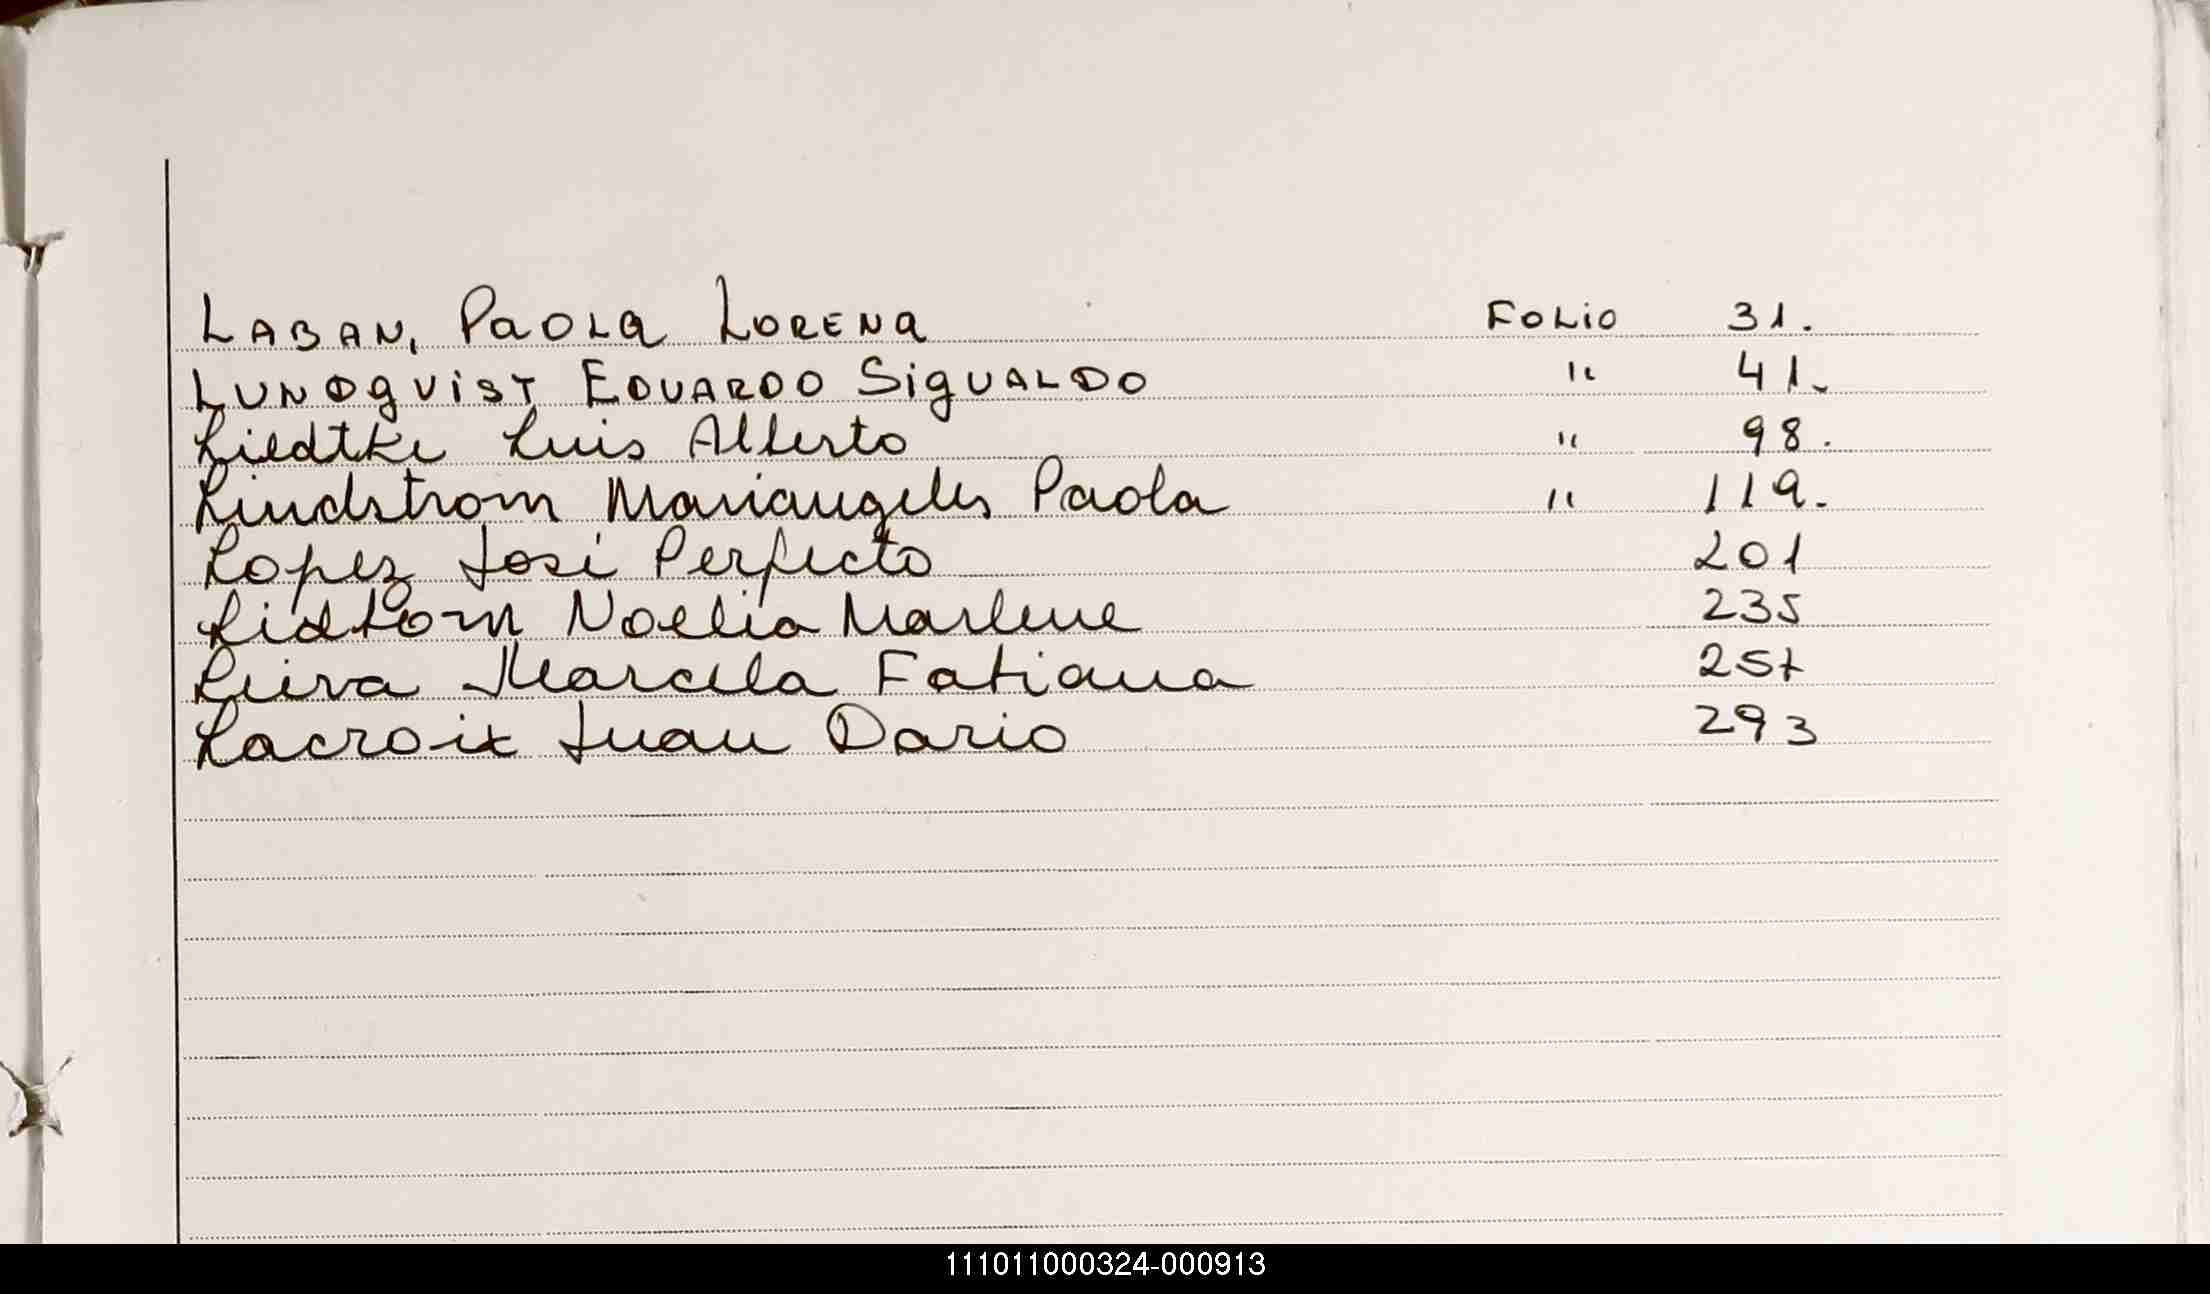 LABAN, PAOLA LORENA FOLIO 31.
LUNDQVIST EDUARDO SIGUALDO " 41.
Liedtke Luis Alberto " 98.
Lindstrom Mariangeles Paola " 119.
Lopez José Perfecto 201
Lidtom Noelia Marlene 235
Leiva Marcela Fatiana 257
Lacroix Juan Dario 293
111011000324-000913